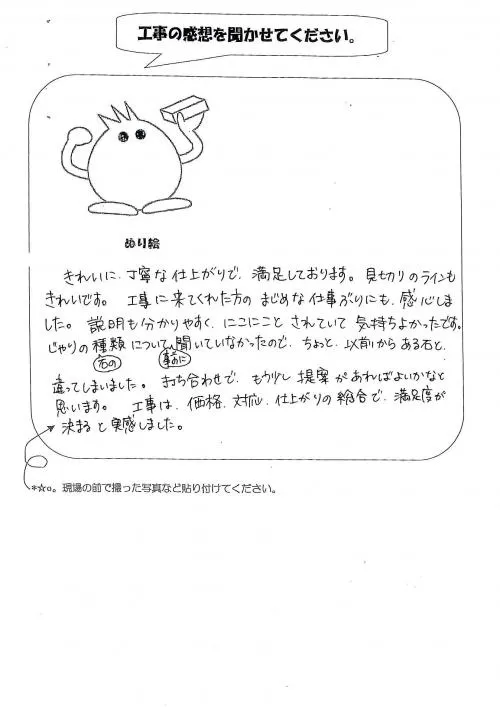 工事の感想を聞かせてください。
ぬり絵
きれいに、丁寧な仕上がりで、満足しております。見切りのラインも
きれいです。工事に来てくれた方の まじめな仕事ぶりにも、感心しま
した。説明も分かりやすく、にこにこと されていて 気持ちよかったです。
じゃりの種類について聞いていなかったので、ちょっと、以前からある石と、
石の 事前に
違ってしまいました。打ち合わせで、もう少し提案があればよいかなと
思います。工事は、価格、対応、仕上がりの総合で、満足度が
決まると実感しました。
*☆o。現場の前で撮った写真など貼り付けてください。